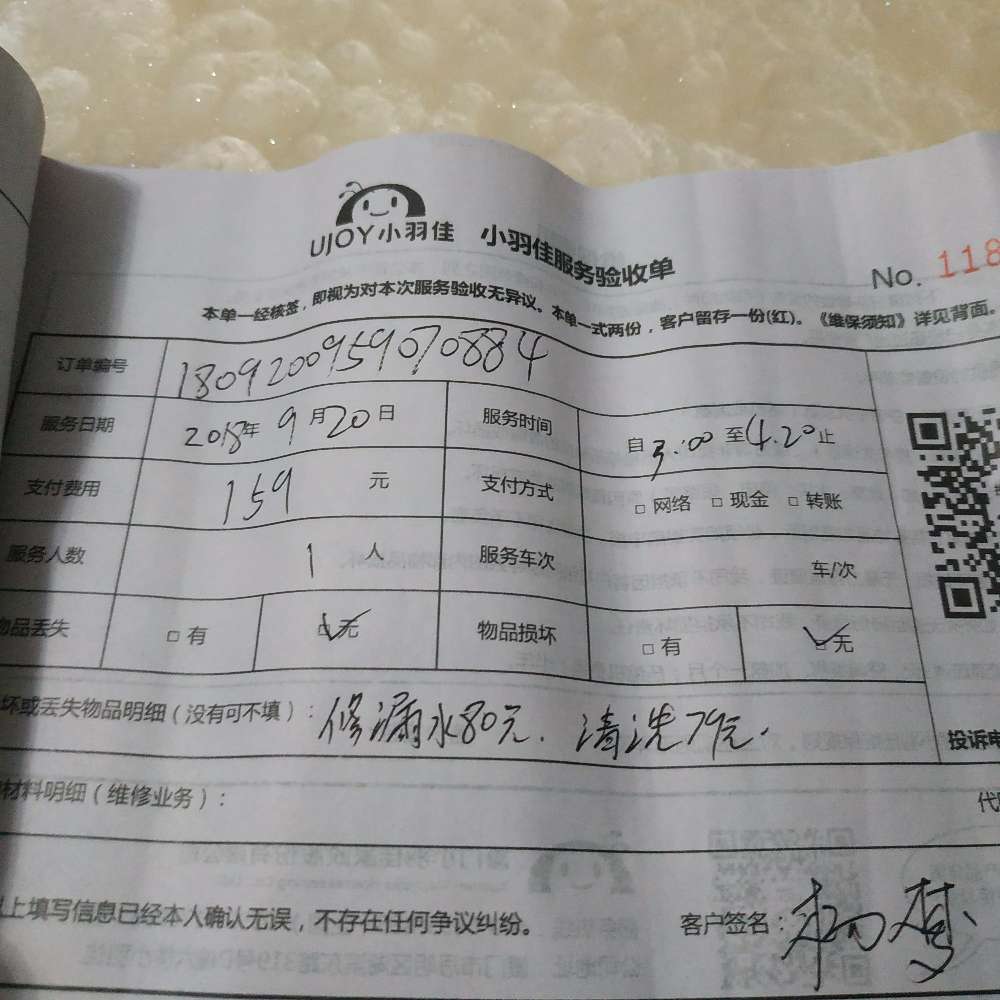 UJOY小羽佳 小羽佳服务验收单
No. 118
本单一经核签，即视为对本次服务验收无异议。本单一式两份，客户留存一份(红)。《维保须知》详见背面。
订单编号 1809200959070884
服务日期 2018年 9月20日 服务时间 自3:00至4.20止
支付费用 159 元 支付方式 □网络 □现金 □转账
服务人数 1 人 服务车次 车/次
物品丢失 □有 □无 物品损坏 □有 □无
坏或丢失物品明细（没有可不填）：修漏水80元. 清洗79元.
投诉电
材料明细（维修业务）：
代
上填写信息已经本人确认无误，不存在任何争议纠纷。 客户签名：